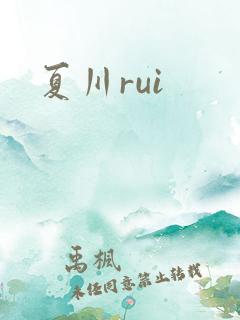 夏川rui
禹枫
未经同意禁止转载